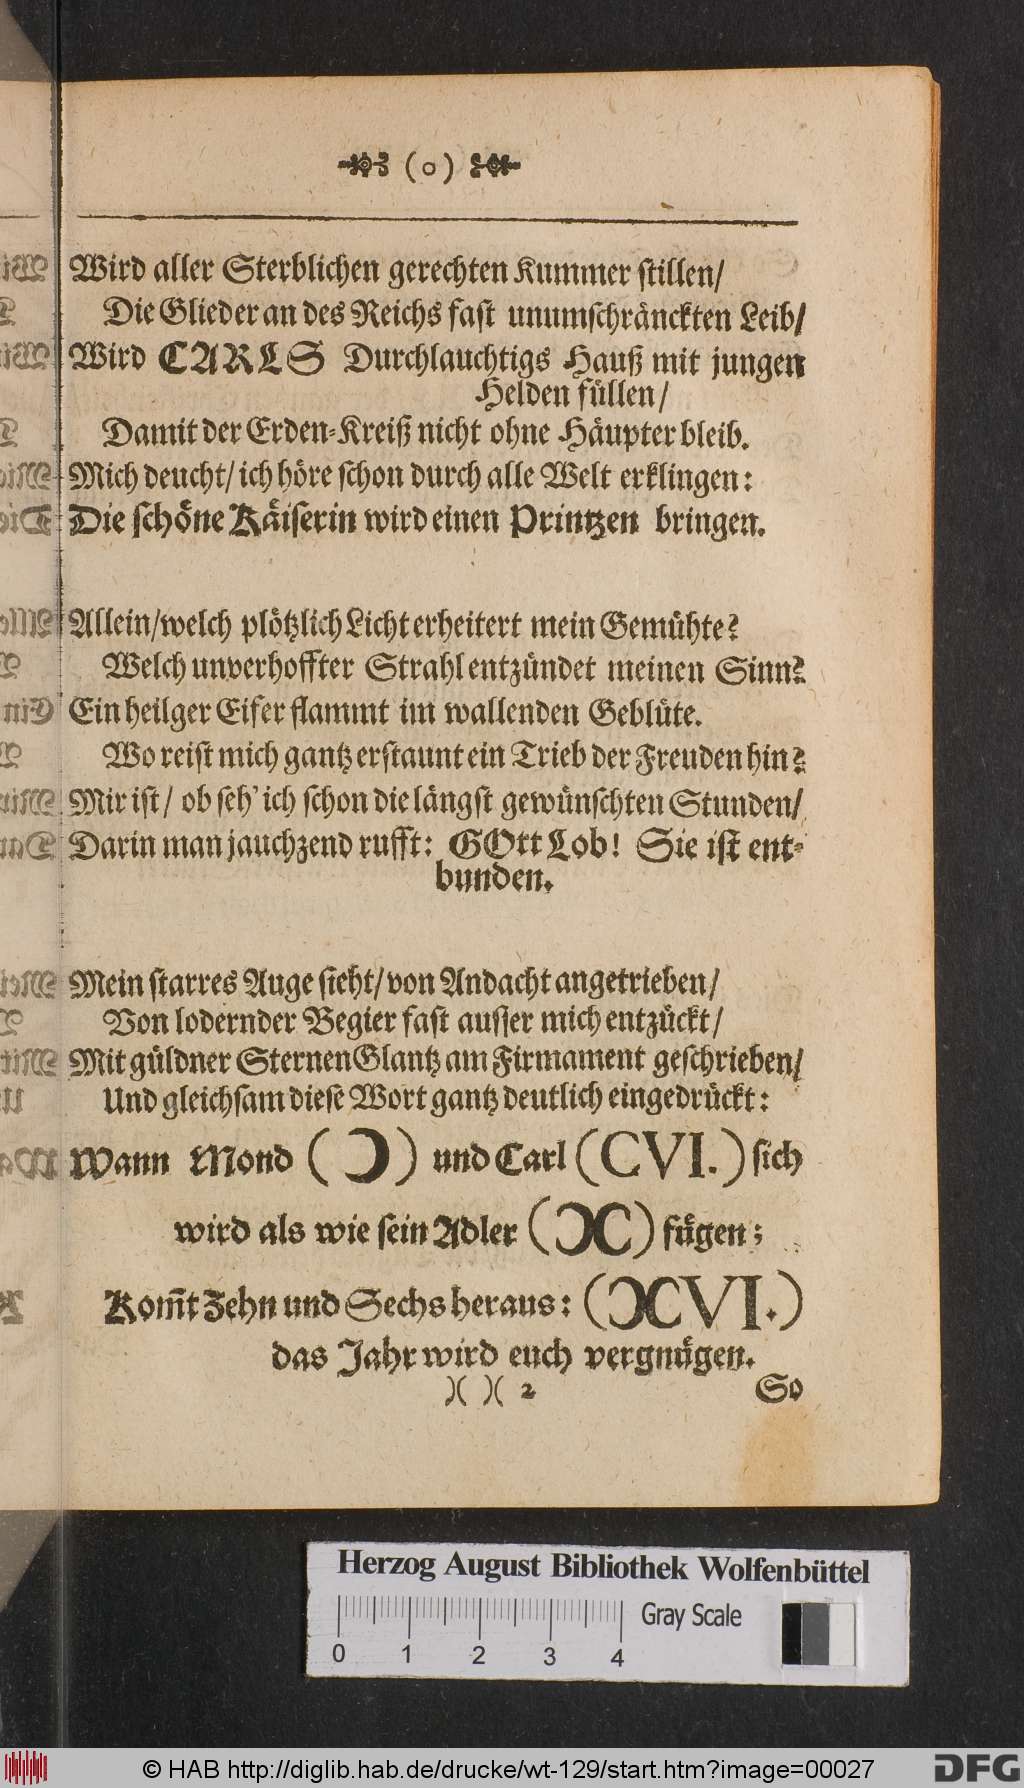 (o)
Wird aller Sterblichen gerechten Kummer stillen/
Die Glieder an des Reichs fast unumschränckten Leib/
Wird CARLS Durchlauchtigs Hauß mit jungen
Helden füllen/
Damit der Erden-Kreiß nicht ohne Häupter bleib.
Mich deucht/ ich höre schon durch alle Welt erklingen:
Die schöne Käiserin wird einen Printzen bringen.
Allein/ welch plötzlich Licht erheitert mein Gemühte?
Welch unverhoffter Strahl entzündet meinen Sinn?
Ein heilger Eifer flammt im wallenden Geblüte.
Wo reist mich gantz erstaunt ein Trieb der Freuden hin?
Mir ist/ ob seh' ich schon die längst gewünschten Stunden/
Darin man jauchzend rufft: GOtt Lob! Sie ist ent-
bunden.
Mein starres Auge sieht/ von Andacht angetrieben/
Von lodernder Begier fast ausser mich entzückt/
Mit güldner Sternen Glantz am Firmament geschrieben/
Und gleichsam diese Wort gantz deutlich eingedrückt:
Wann Mond (Ɔ) und Carl (CVI.) sich
wird als wie sein Adler (ƆC) fügen;
Kom̃t Zehn und Sechs heraus: (ƆCVI.)
das Jahr wird euch vergnügen.
)( )( 2 So
Herzog August Bibliothek Wolfenbüttel
Gray Scale
0 1 2 3 4
© HAB http://diglib.hab.de/drucke/wt-129/start.htm?image=00027
DFG